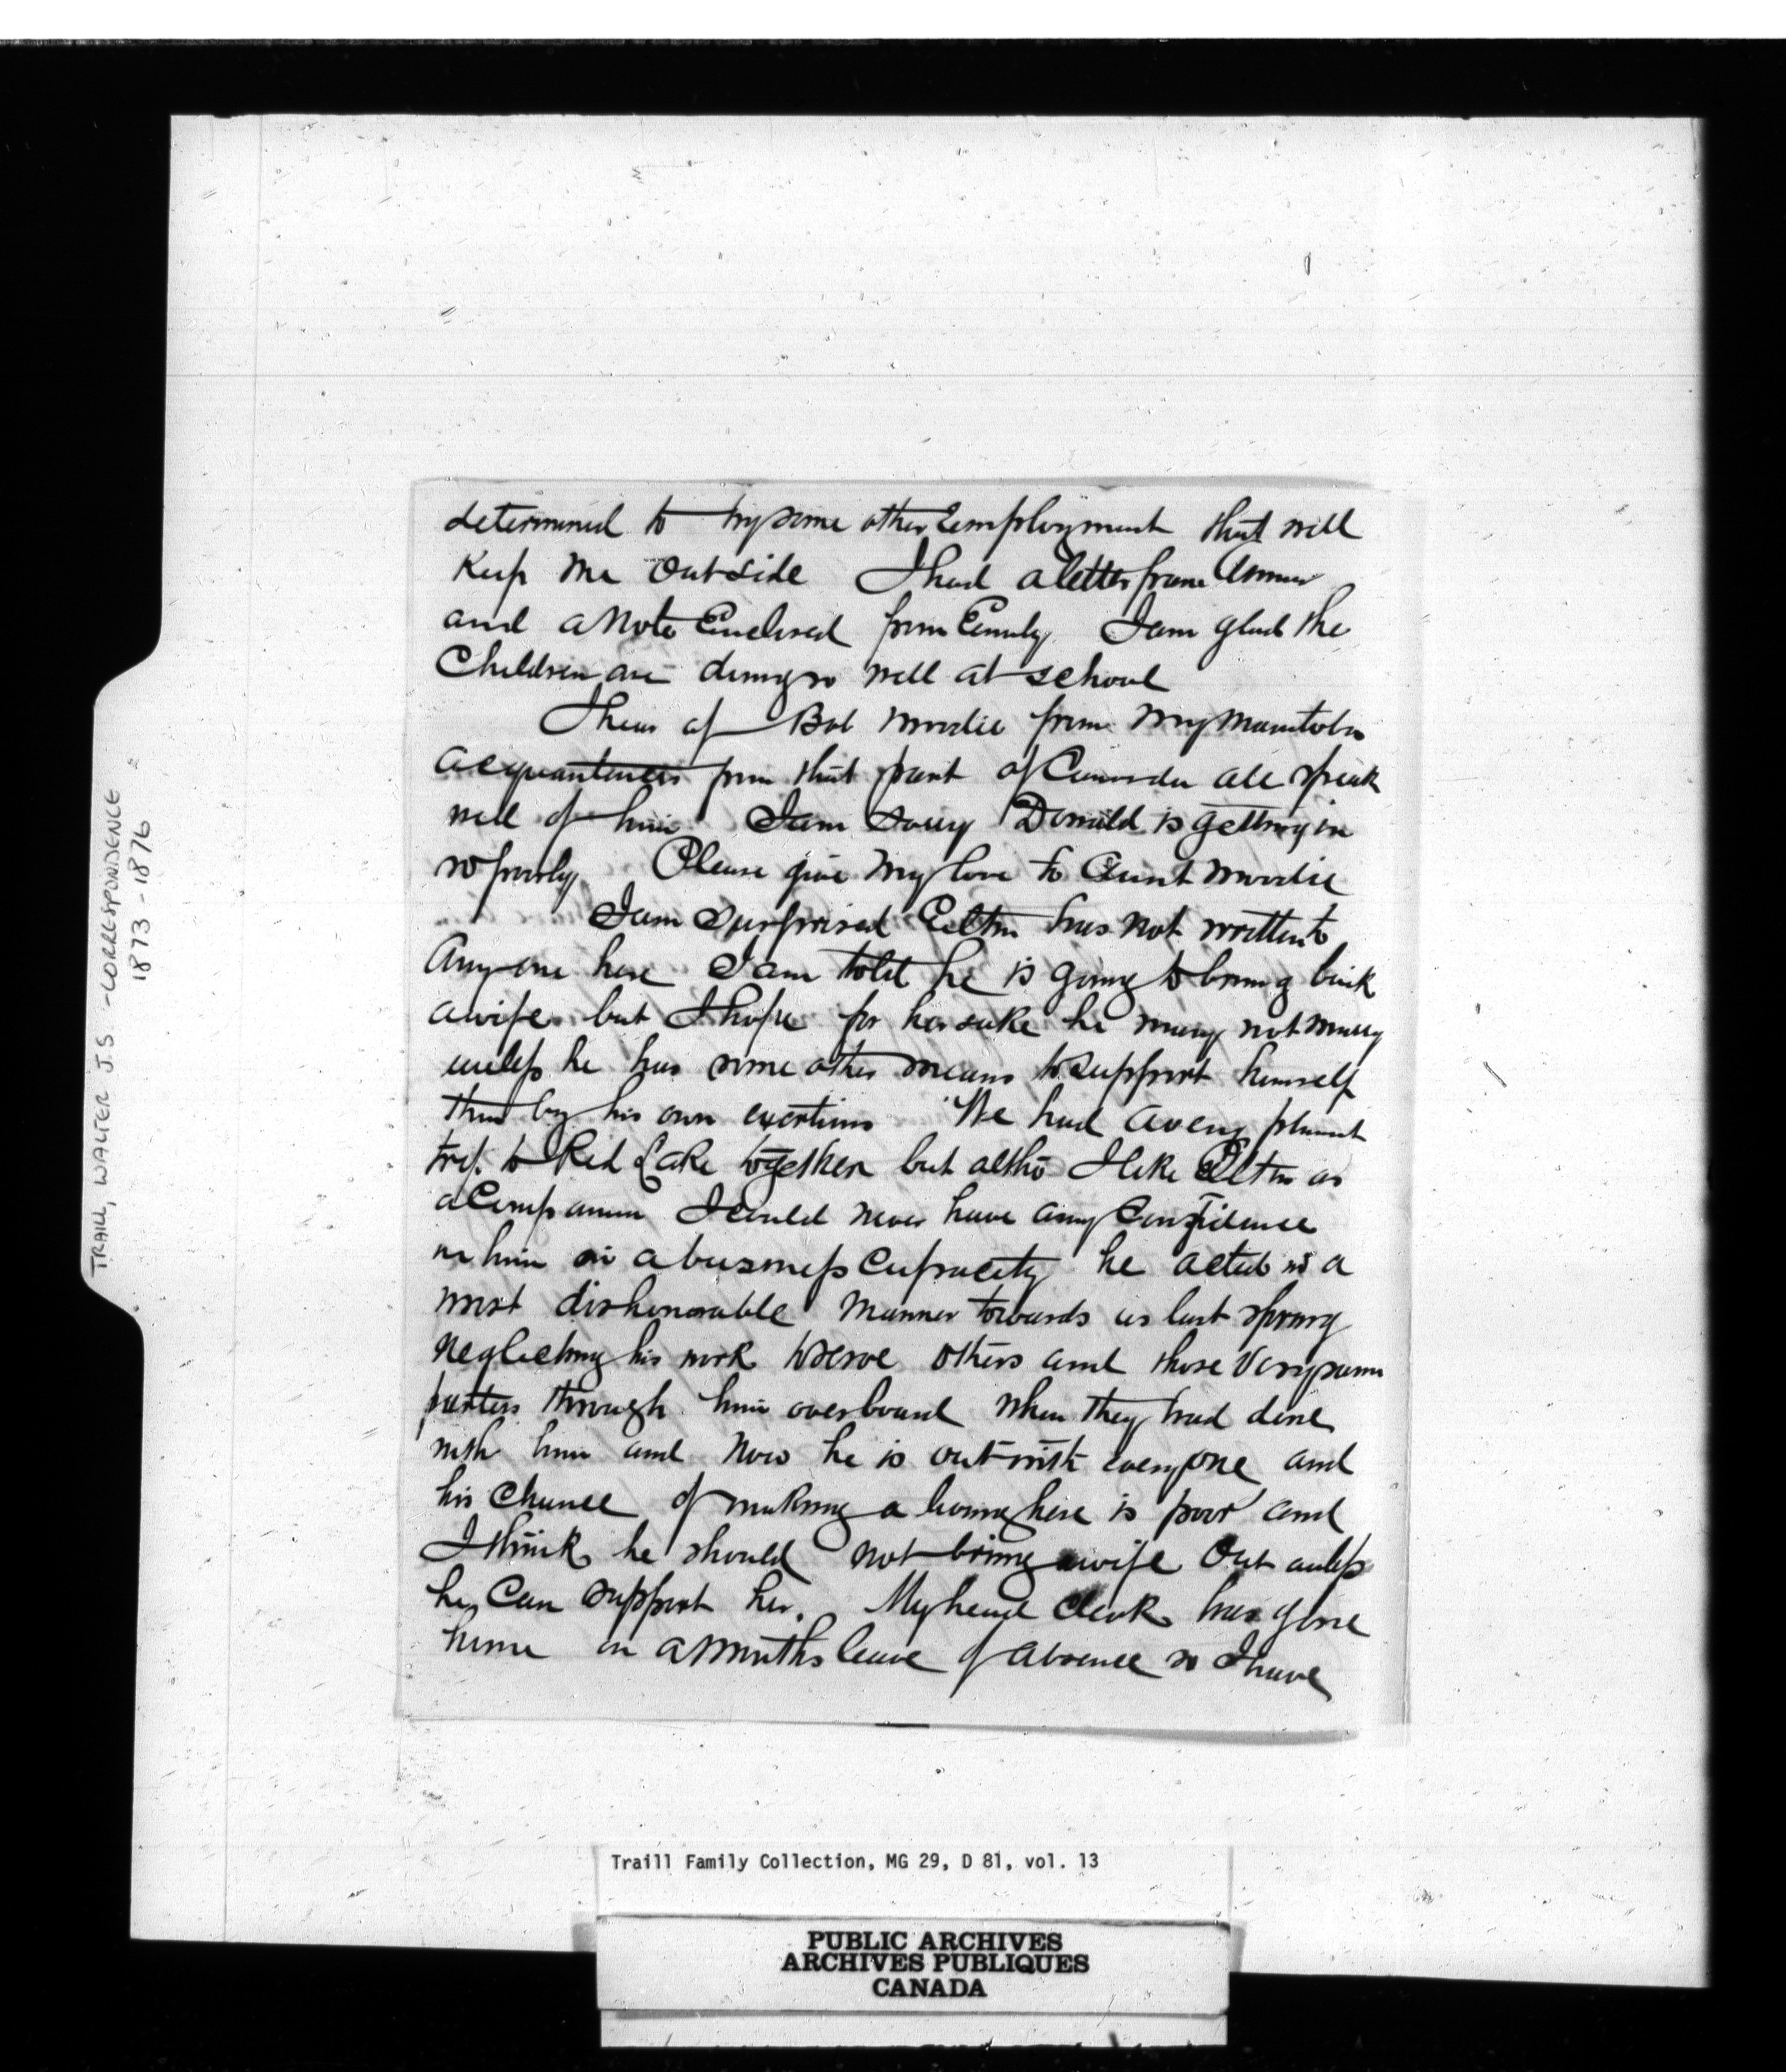 determined to try some other Employment that will
Keep me Outside I had a letter from Annie
and a Note Enclosed from Emily I am glad the
Children are doing so well at school
I hear of Bob Moodie from My Manitoba
acquantences from that part of Canada all speak
well of him I am Sorry Donald is getting on
so poorly Please give My love to Aunt Moodie
I am Surprised has not written to
Any one here I am told he is going to bring back
a wife but I hope for her sake he may not marry
unless he has some other means to support himself
than by his own exertions We had a very pleasant
trip to Red Lake together but altho I like as
a Companion I could never have any Confidence
in him in a business Capacity he acted in a
most dishonorable Manner towards us last spring
Neglecting his work to serve others and those Very same
parties through him overboard When they had done
with him and Now he is out with everyone and
his Chance of making a living here is poor and
I think he should not bring a wife Out unless
he Can support her. My head Clerk has gone
home on a Months leave of absence so I have
TRAILL, WALTER J.S. - CORRESPONDENCE
1873 - 1876
Traill Family Collection, MG 29, D 81, vol. 13
PUBLIC ARCHIVES
ARCHIVES PUBLIQUES
CANADA